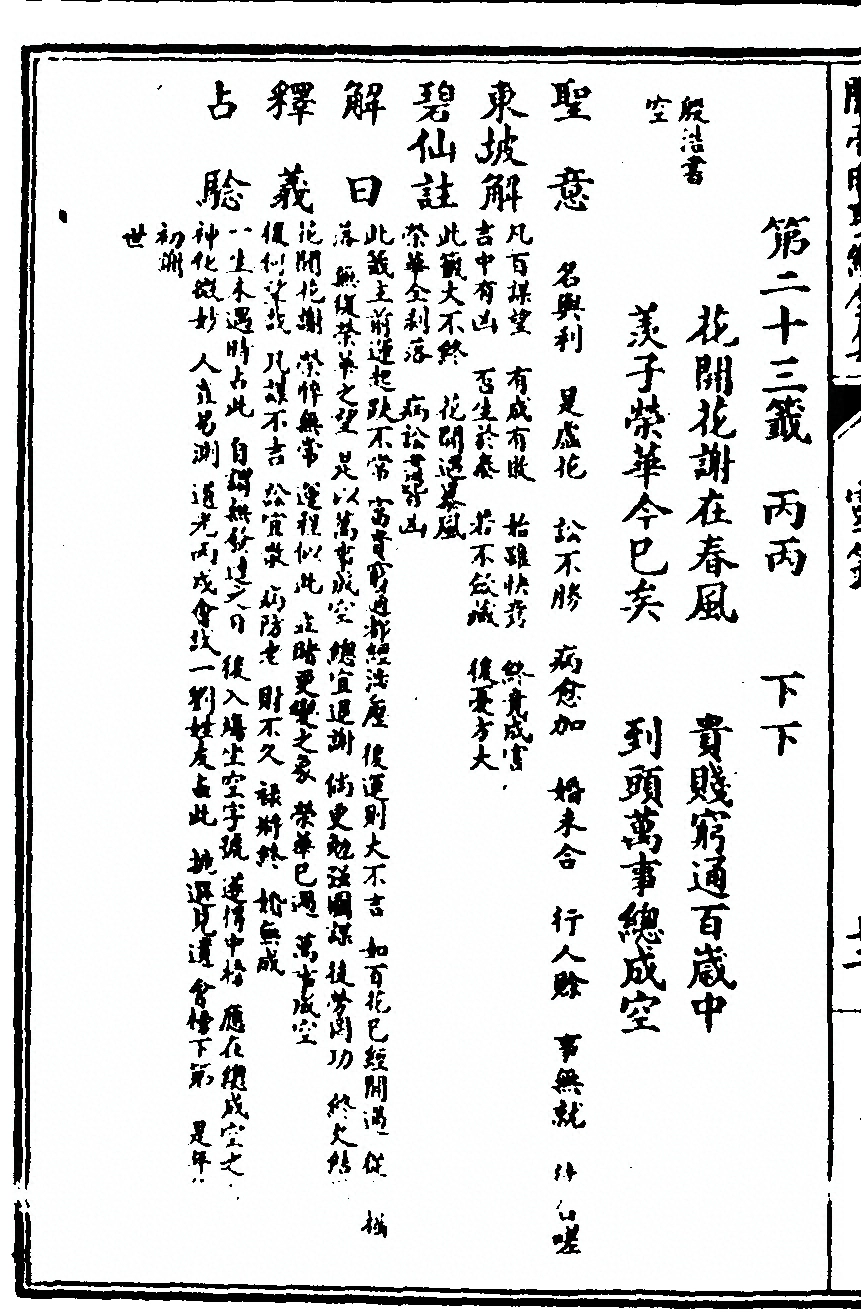 第二十三籤 丙丙 下下
花開花謝在春風 貴賤窮通百歲中
羨子榮華今已矣 到頭萬事總成空
殷浩書
空
聖意 名與利 是虛花 訟不勝 病愈加 婚未合 行人賒 事無就
東坡解 凡百謀望 有成有敗 始雖快意 終竟成害
吉中有凶 否生於泰 若不斂藏 後憂方大
碧仙註 此籤大不終 花開遇暴風
榮華全剝落 病訟 皆凶
解曰 此籤主前運起跌不常 富貴窮通都經 歷 後運則大不吉 如百花已經開過 從
落 無復榮華之望 是以萬事成空 總宜退謝 倘更勉強圖謀 徒勞 功 終欠
釋義 花開花謝 榮悴無常 運程似此 更變之象 榮華已過 萬事成空
後何望哉 凡謀不吉 訟宜散 病防老 財不久 祿將終 婚無成
占驗 一生未遇時占此 自謂無發達之日 後入場坐空字號 遂得中榜 應在總成空之
神化微妙 人豈易測 道光丙戌會試一劉姓友占此 挑選見遺 會榜下第 是年
初謝
世